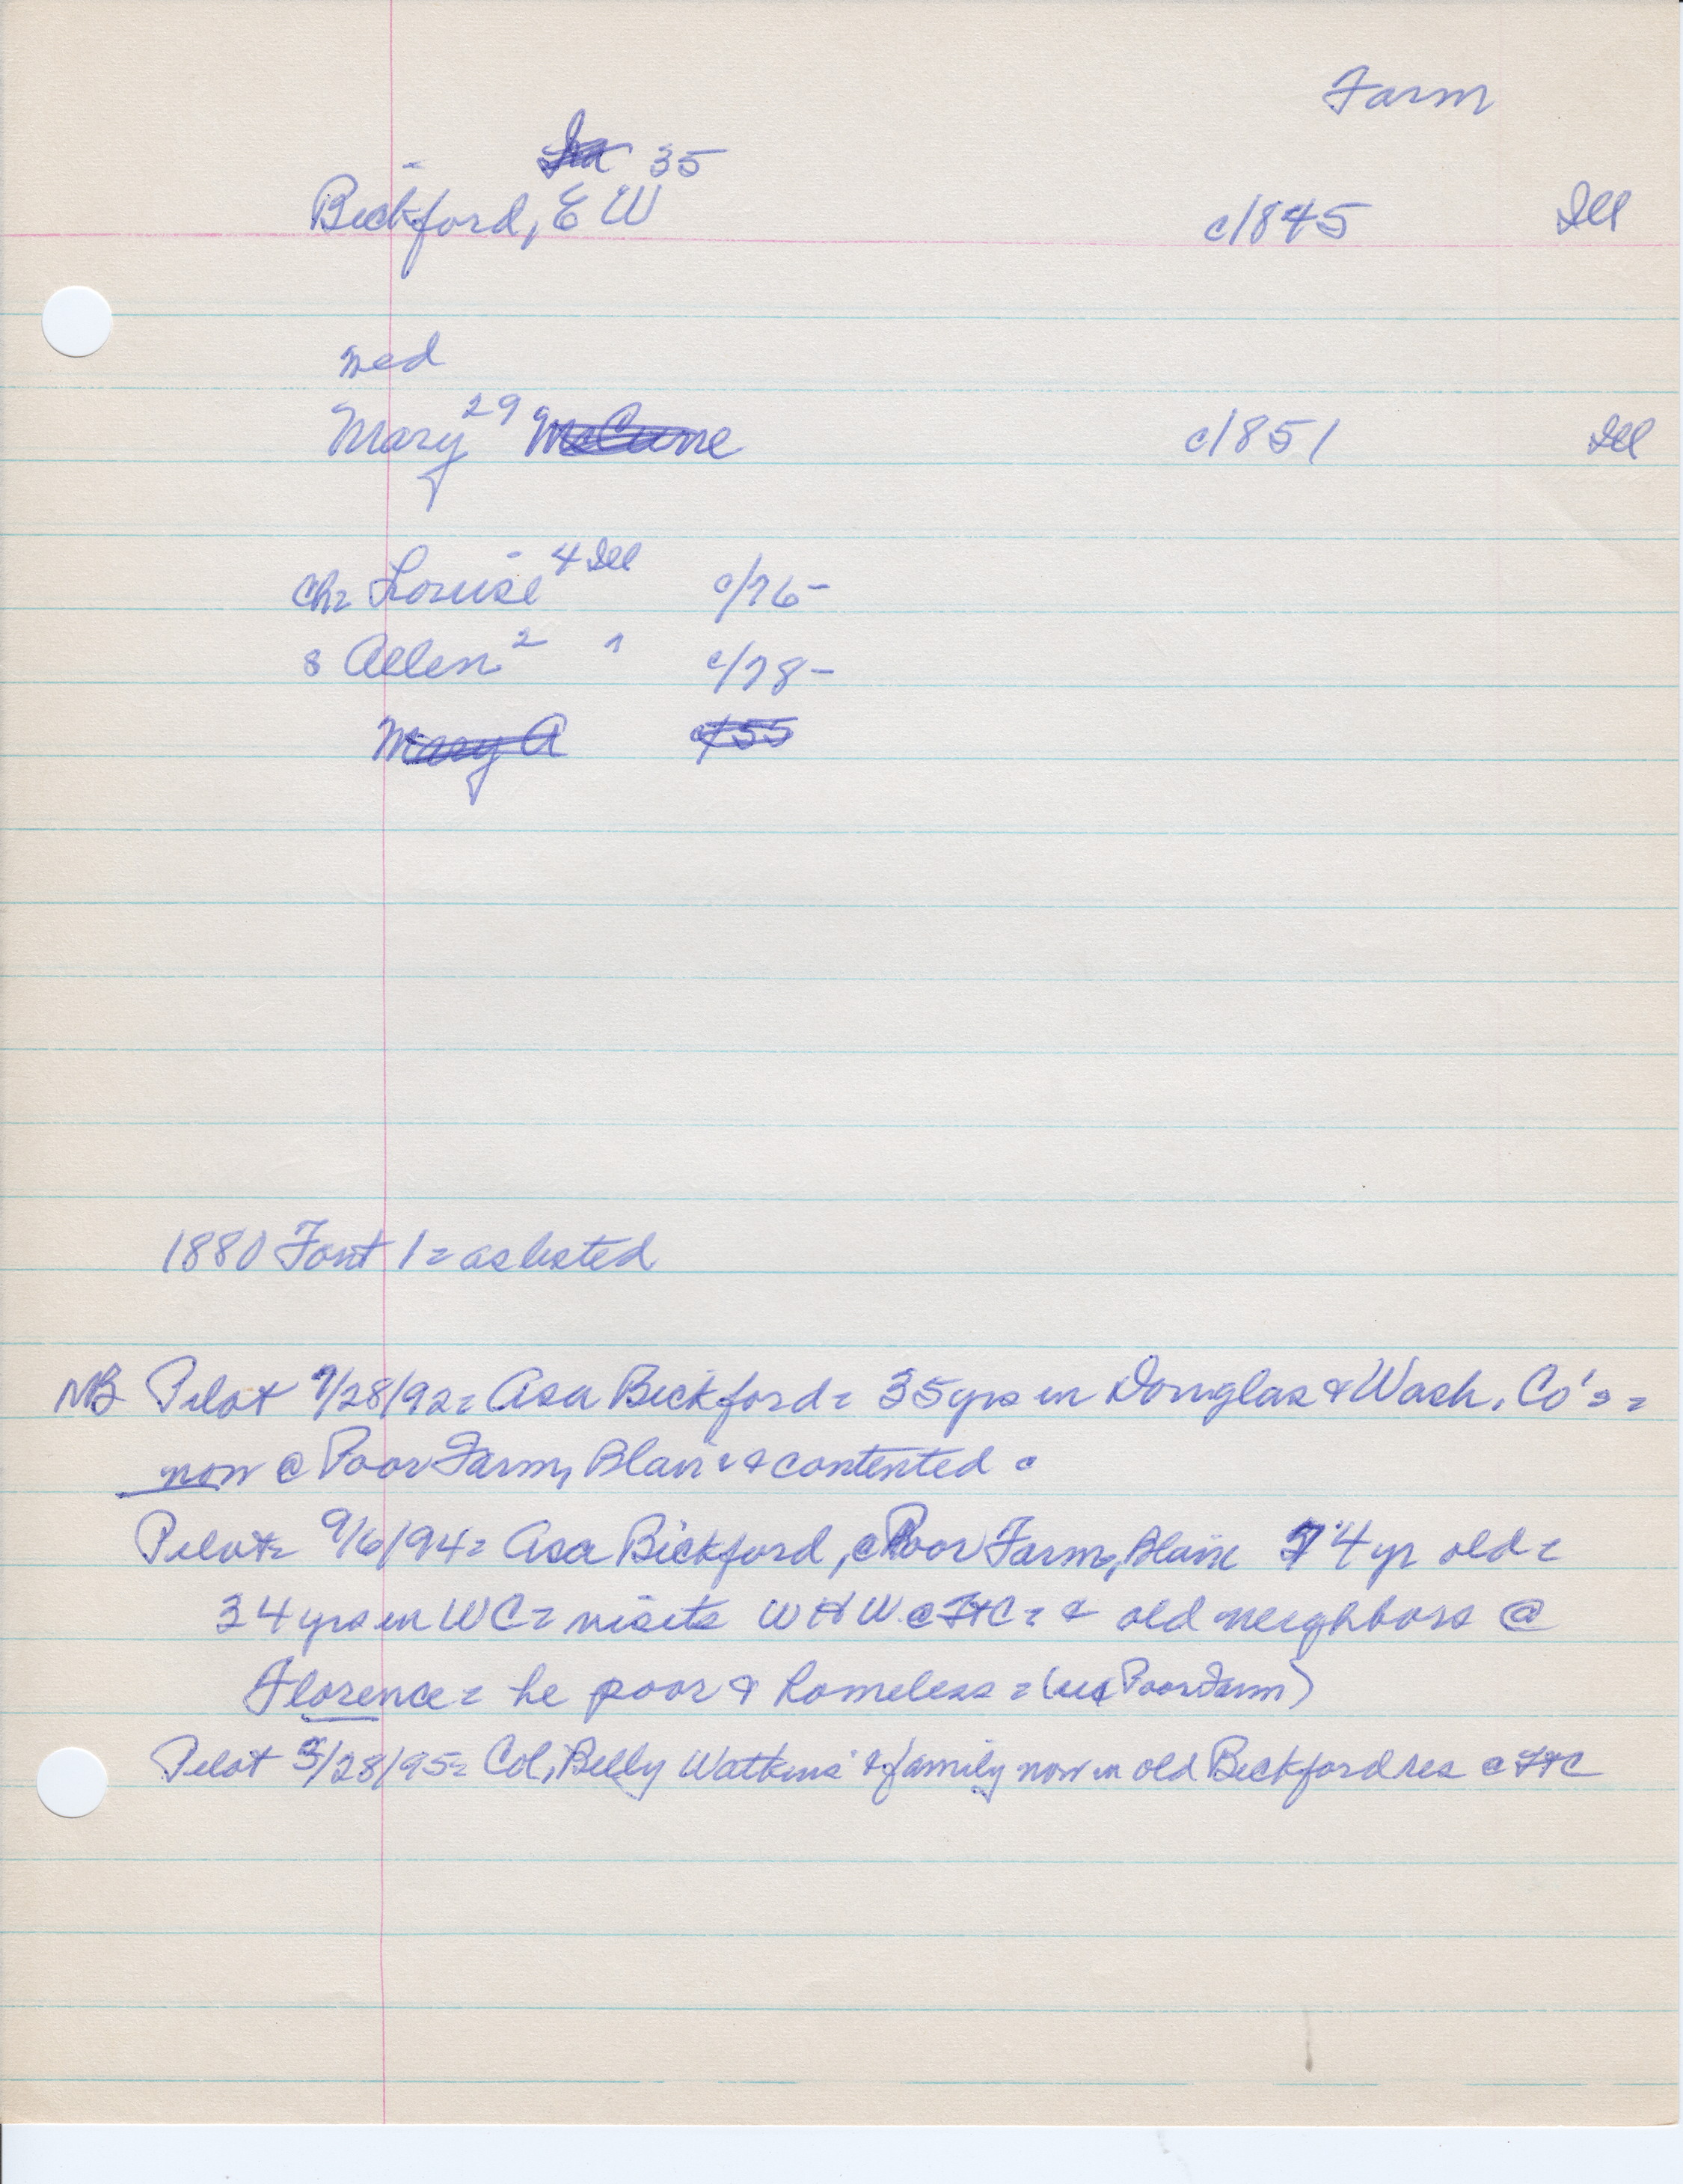 Farm
35
Bickford, E W c/1845 Ill
med
Mary 29 McCune c/1851 Ill
Ch= Louise 4 Ill c/76-
8 Allen 2 " c/78-
Mary A c/55
1880 Font 1= as listed
NB Pilot 9/28/92= Asa Bickford= 35 yrs in Douglas & Wash. Co's=
now @ Poor Farm, Blair & contented.
Pilot= 9/6/94= Asa Bickford, @ Poor Farm, Blair 74 yr old=
34 yrs in WC= visits WHW @ FtC= & old neighbors @
Florence= he poor & homeless= ( Poor Farm)
Pilot 3/28/95= Col, Billy Watkins & family now in old Bickford res @ FtC